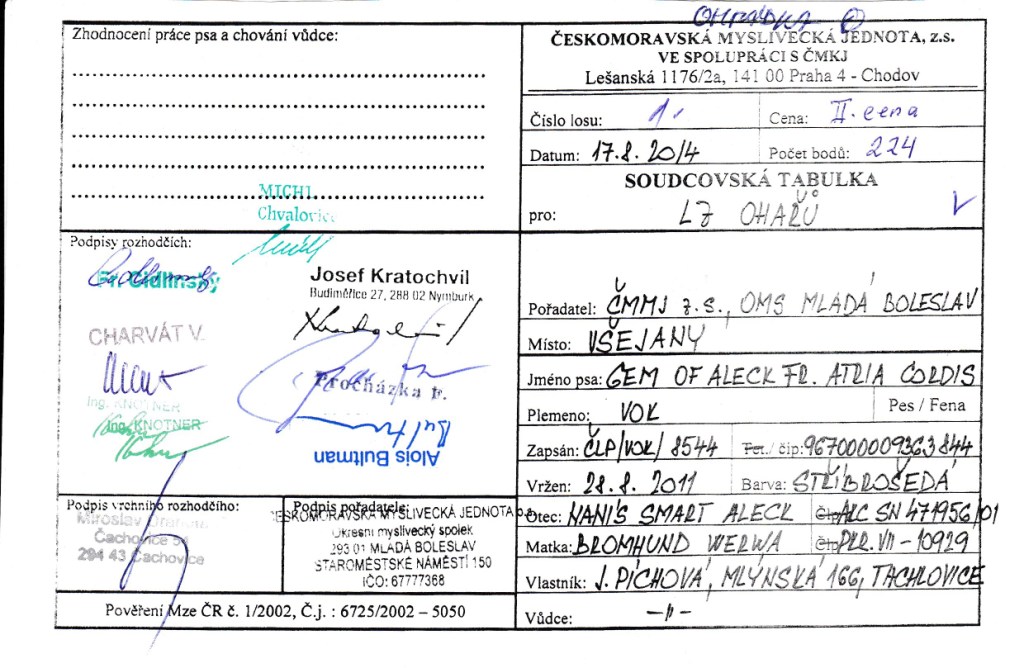 Zhodnocení práce psa a chování vůdce:
MICHL
Chvalovice
Podpisy rozhodčích:
Fr. Cidlinský
Josef Kratochvil
Budiměřice 27, 288 02 Nymburk
CHARVÁT V.
Procházka
Ing. KNOTNER
Ing. KNOTNER
Alois Bultman
Podpis vrchního rozhodčího:
Miroslav
Čachovice
294 43 Čachovice
Podpis pořadatele:
ČESKOMORAVSKÁ MYSLIVECKÁ JEDNOTA
Okresní myslivecký spolek
293 01 MLADÁ BOLESLAV
STAROMĚSTSKÉ NÁMĚSTÍ 150
IČO: 67777368
Pověření Mze ČR č. 1/2002, Č.j. : 6725/2002 – 5050
ČESKOMORAVSKÁ MYSLIVECKÁ JEDNOTA, z.s.
VE SPOLUPRÁCI S ČMKJ
Lešanská 1176/2a, 141 00 Praha 4 - Chodov
Číslo losu: 1. Cena: II. cena
Datum: 17.8. 2014 Počet bodů: 224
SOUDCOVSKÁ TABULKA
pro: LZ OHAŘŮ
Pořadatel: ČMMJ z.s., OMS MLADÁ BOLESLAV
Místo: VŠEJANY
Jméno psa: GEM OF ALECK FR. ATRIA CORDIS
Plemeno: VOK Pes / Fena
Zapsán: ČLP/VOK/8544 Tet./ čip: 967000009363844
Vržen: 28.8. 2011 Barva: STŘÍBROŠEDÁ
Otec: HANIS SMART ALECK Člp ALC SN 471956/01
Matka: BROMHUND WERWA Člp PKR. VII - 10929
Vlastník: J. PÍCHOVÁ, MLÝNSKÁ 166, TACHLOVICE
Vůdce: -||-